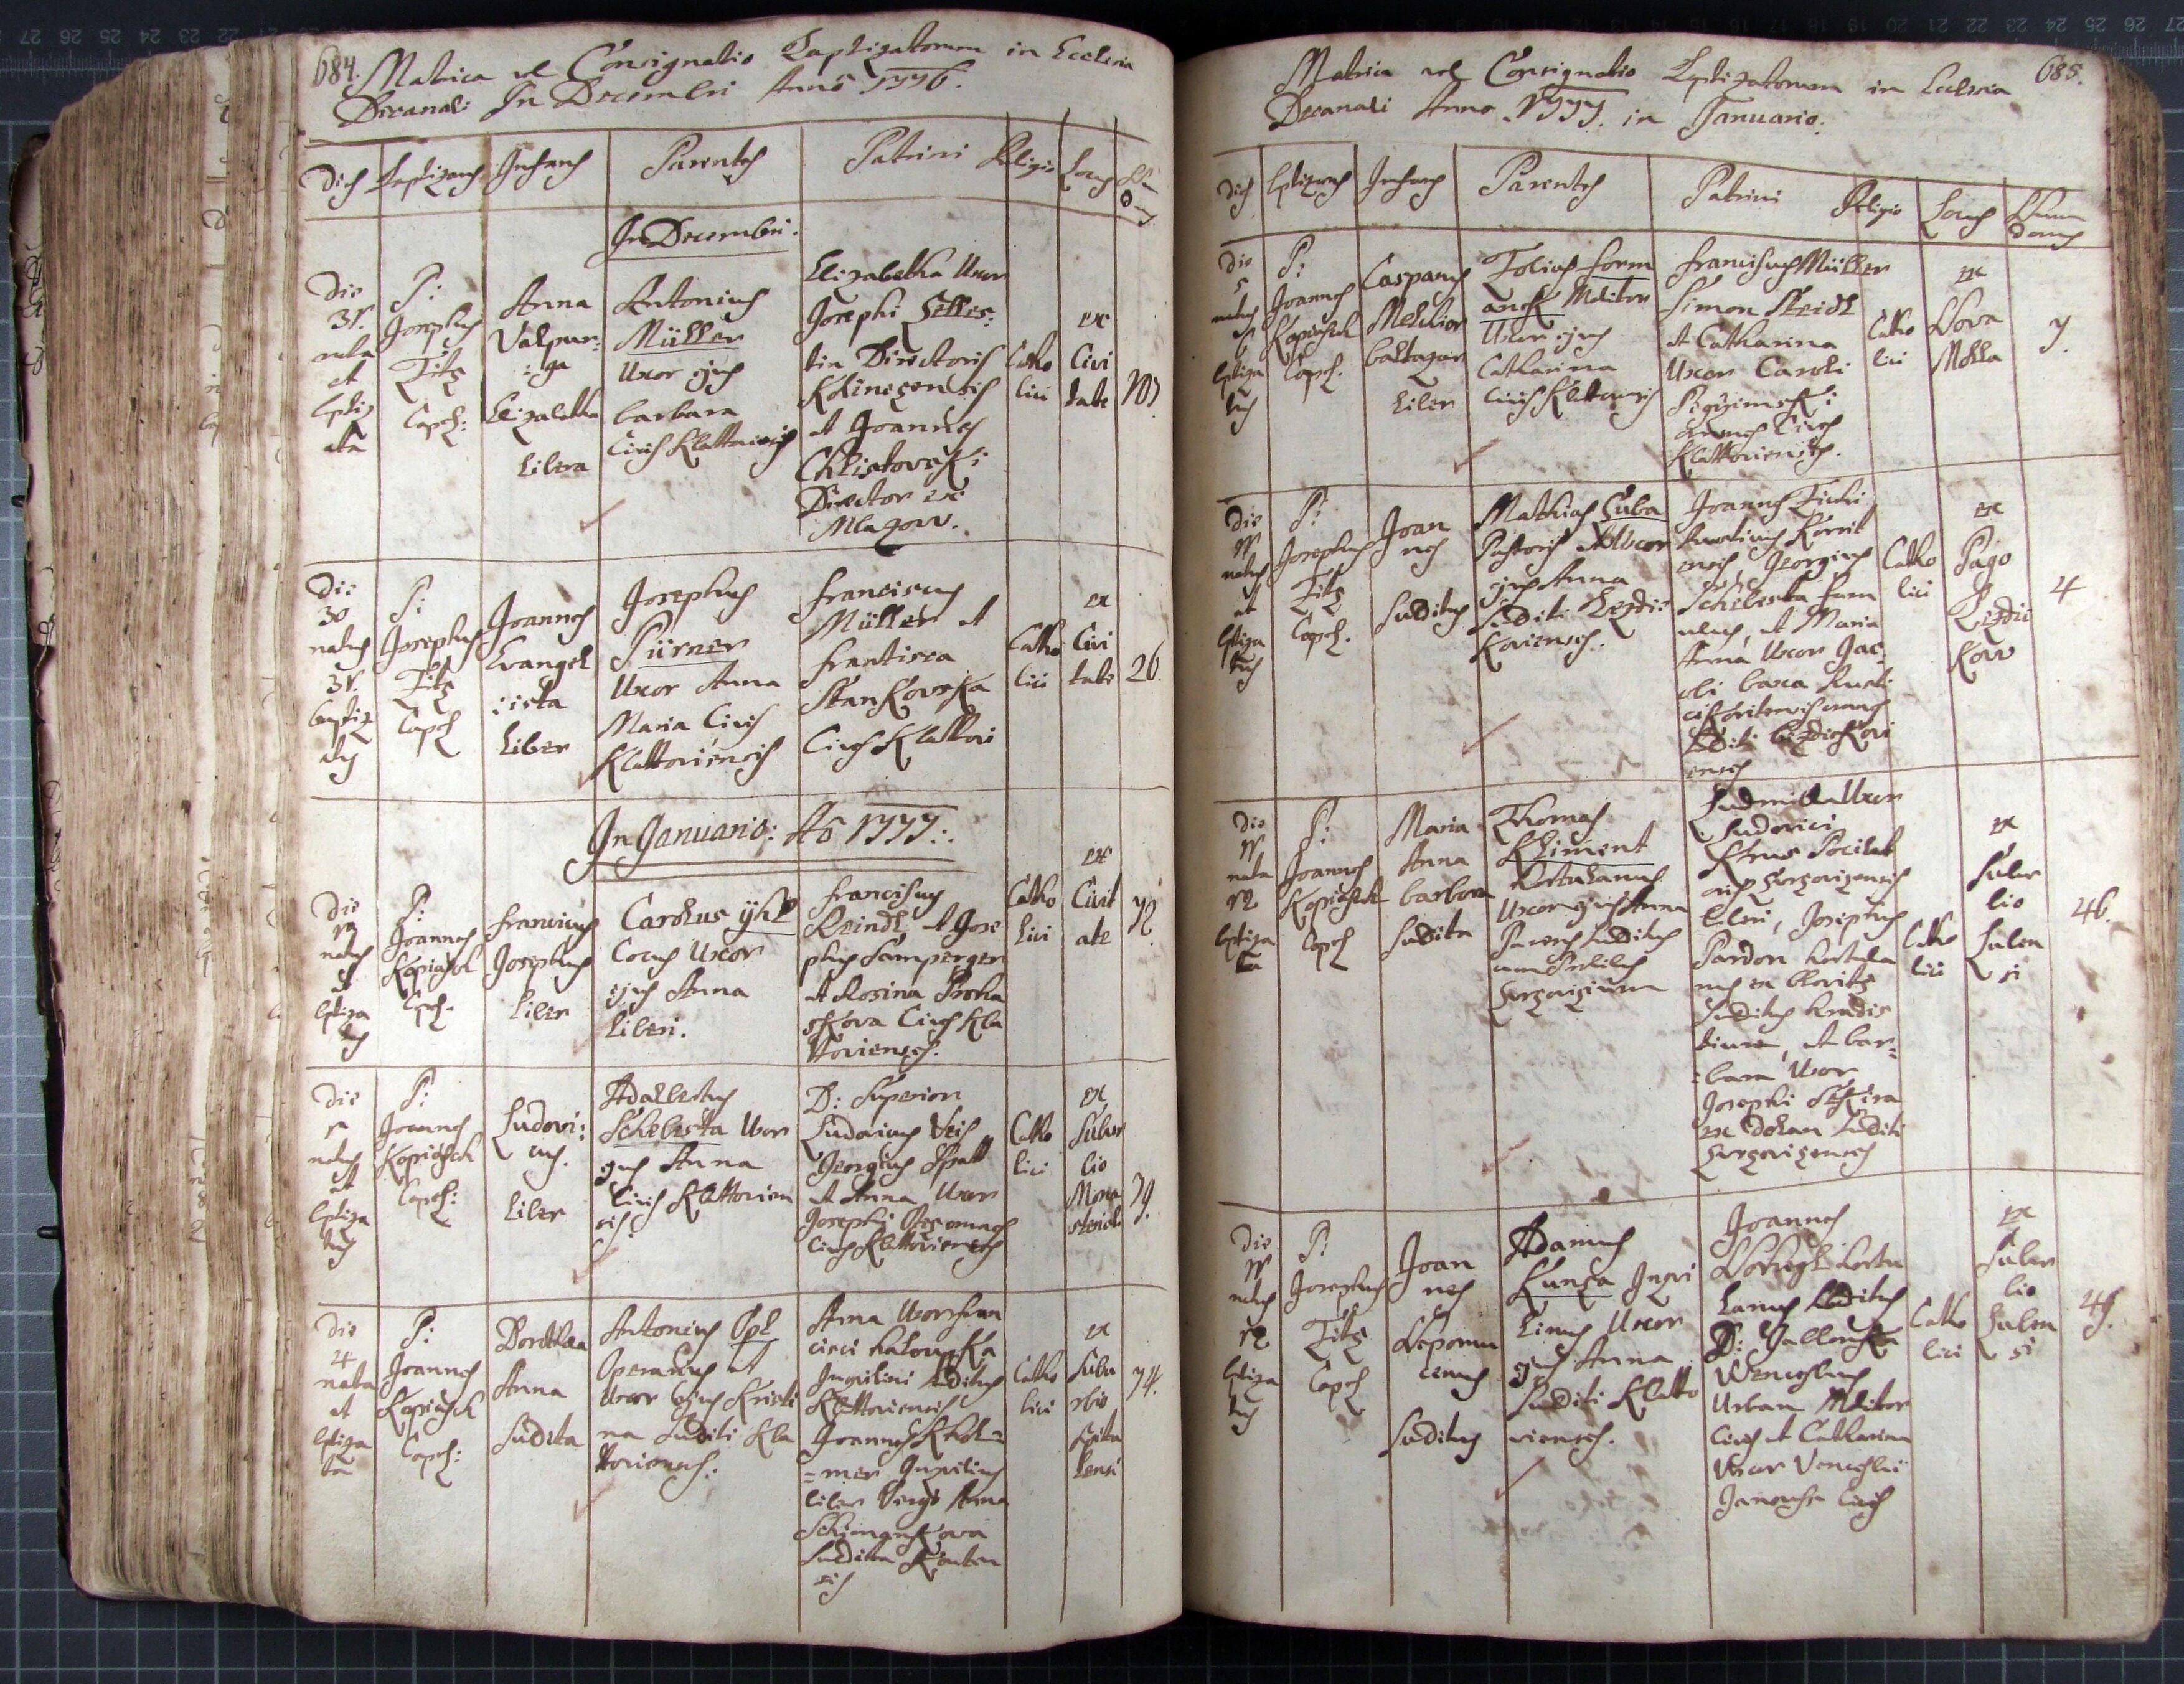 684. Matrica vel Consignatio Baptizatorum in Ecclesia
Decanali In Decembri Anno 1776.
Dies Baptizans Infans Parentes Patrini Religio Locus
In Decembri.
Die
31.
nata
et
bptiz
ata
P:
Josephus
Titz
Capel:
Anna
Valpur:
:ga
Elizabetha
Libera
Antonius
Müller
Uxor ejus
barbara
Civis Klattoviensis
Elizabetha Uxor
Josephi
Directoris
et Joannes
Chlistovski
Director ex
Mlazow.
Catho
lici
ex
Civi
tate
Die
30
natus
31.
baptiz
atus
P:
Josephus
Titz
Capel
Joannes
Evangel
:ista
Liber
Josephus
Pürner
Uxor Anna
Maria Civis
Klattoviensis
Franciscus
Müller et
Frantisca
Stankovska
Cives Klattovi
Catho
lici
ex
Civi
tate
26.
In Januario: Ao 1777:.
Die
natus
et
bptiza
tus
P:
Joannes
Kopiasch
Capel.
Franciscus
Josephus
Liber
Carolus
Cocus Uxor
ejus Anna
Liberi.
Franciscus
Reindl et Jose
phus Lamperger
et Rosina Proha
skova Cives Kla
ttovienses.
Catho
lici
ex
Civit
ate
Die
natus
et
bptiza
tus
P:
Joannes
Kopiasch
Capel:
Ludovi:
cus.
Liber
Adalbertus
Schebesta Uxor
ejus Anna
Civis Klattovien
sis.
D: Superior
Ludovicus Veis
Georgius
et Anna Uxor
Josephi
Cives Klattovienses
Catho
lici
ex
Subur
bio
Mona
steriali
79.
Die
4
nata
et
bptiza
ta
P:
Joannes
Kopiasch
Capel:
Dorothea
Anna
Subdita
Antonius Opl
Operarius et
Uxor Ejus Kristi
na Subditi Kla
ttovienses.
Anna Uxor Fran
cisci
Inquilini subditus
Klattoviensis
Joannes
=mer Inquilinus
liber Virgo Anna
Schimankova
Subdita
sis
Catho
lici
ex
Subu
rbio
Spita
lensi
74.
Matrica vel Consignatio Bptizatorum in Ecclesia 685.
Decanali Anno 1777. in Januario.
dies bptizans Infans Parentes Patrini Religio Locus Num
domus
Die
5
natus
6
bptiza
tus
P:
Joannes
Kopiasch
Capel.
Casparus
Melchior
baltazar
Liber
Tobias Form
anek Molitor
Uxor ejus
Catharina
Civis Klattoviensis
Franciscus Müller
Simon Steidl
et Catharina
Uxor Caroli
omnes Cives
Klattovienses.
Catho
lici
ex
Nova
Molla
7.
Die
11
natus
et
bptiza
tus
P:
Josephus
Titz
Capel.
Joan
nes
Subditus
Mathias Cuba
Pastoris et Uxor
ejus Anna
Subditi Bezdie
kovienses.
Joannes
Georgius
Schebesta Fam
ulus, et Maria
Anna Uxor Jac:
obi
omnes
Subditi bezdiekovi
enses
Catho
lici
ex
Pago
Bezdie
kow
4
Die
11
nata
12
bptiza
ta
P:
Joannes
Kopiasch
Capel
Maria
Anna
barbora
Subdita
Thomas
Kliment
Hortulanus
Uxor ejus Anna
Parens Subditus
Ludmilla Uxor
Ludovici
liberi, Josephus
Pardon hortula
nus ex
Subditus
et bar=
=bara Uxor
Josephi
ex Dolan Subditi
Catho
lici
ex
Subur
bio
Luben
si
46.
Die
11
natus
12
bptiza
tus
P:
Josephus
Titz
Capel
Joan
nes
Nepomu
cenus
Subditus
Adamus
Kunza Inqui
linus Uxor
ejus Anna
Subditi Klatto
vienses.
Joannes
Hortu
lanus Subditus
D:
Wenceslaus
Urban Molitor
Cives et Catharina
Uxor Venceslai
Civis
Catho
lici
ex
Subur
bio
Luben
si
49.